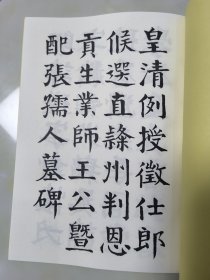 皇清例授徵仕郎
候選直隸州判恩
貢生業師王公暨
配張孺人墓碑